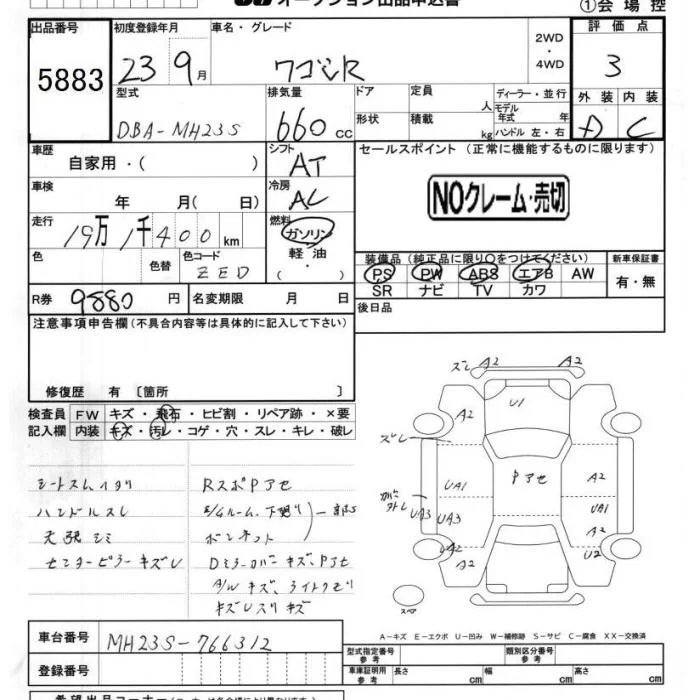 オークション出品申込書
①会場控
出品番号 初度登録年月 車名・グレード 2WD・4WD 評価点
5883 23 9月 ワゴンR 3
型式 排気量 ドア 定員 人 ディーラー・並行 外装 内装
DBA-MH23S 660cc 形状 積載 kg モデル年式 年 ハンドル 左・右 A C
車歴 シフト セールスポイント(正常に機能するものに限ります)
自家用・( ) AT
車検 冷房 NOクレーム・売切
年 月( 日) AC
走行 燃料
19万1千400km ガソリン
軽油
・( )
色 色替 色コード 装備品(純正品に限り○をつけてください) 新車保証書
ZED PS PW ABS エアB AW 有・無
SR ナビ TV カワ
R券 9880円 名変期限 月 日 後日品
注意事項申告欄(不具合内容等は具体的に記入して下さい)
修復歴 有 〔箇所 〕
検査員 FW キズ・飛石・ヒビ割・リペア跡・×要
記入欄 内装 キズ・汚レ・コゲ・穴・スレ・キレ・破レ
シートスレ、イタリ RスポPアセ
ハンドルスレ
天張シミ ボンネット
センターピラーキズレ Dミラーカバーキズ、Pアセ
A/Wキズ、ライトクモリ
ズレ A2 A2
A2 U1
ズレ
UA1 Pアセ A2
カバー外レ UA3 UA3 UA1
A2
UA2 U2
A2
スペア
A-キズ E-エクボ U-凹み W-補修跡 S-サビ C-腐食 XX-交換済
車台番号 MH23S-766312 型式指定番号 参考 類別区分番号 参考
登録番号 車庫証明用 参考 長さ cm 幅 cm 高さ cm